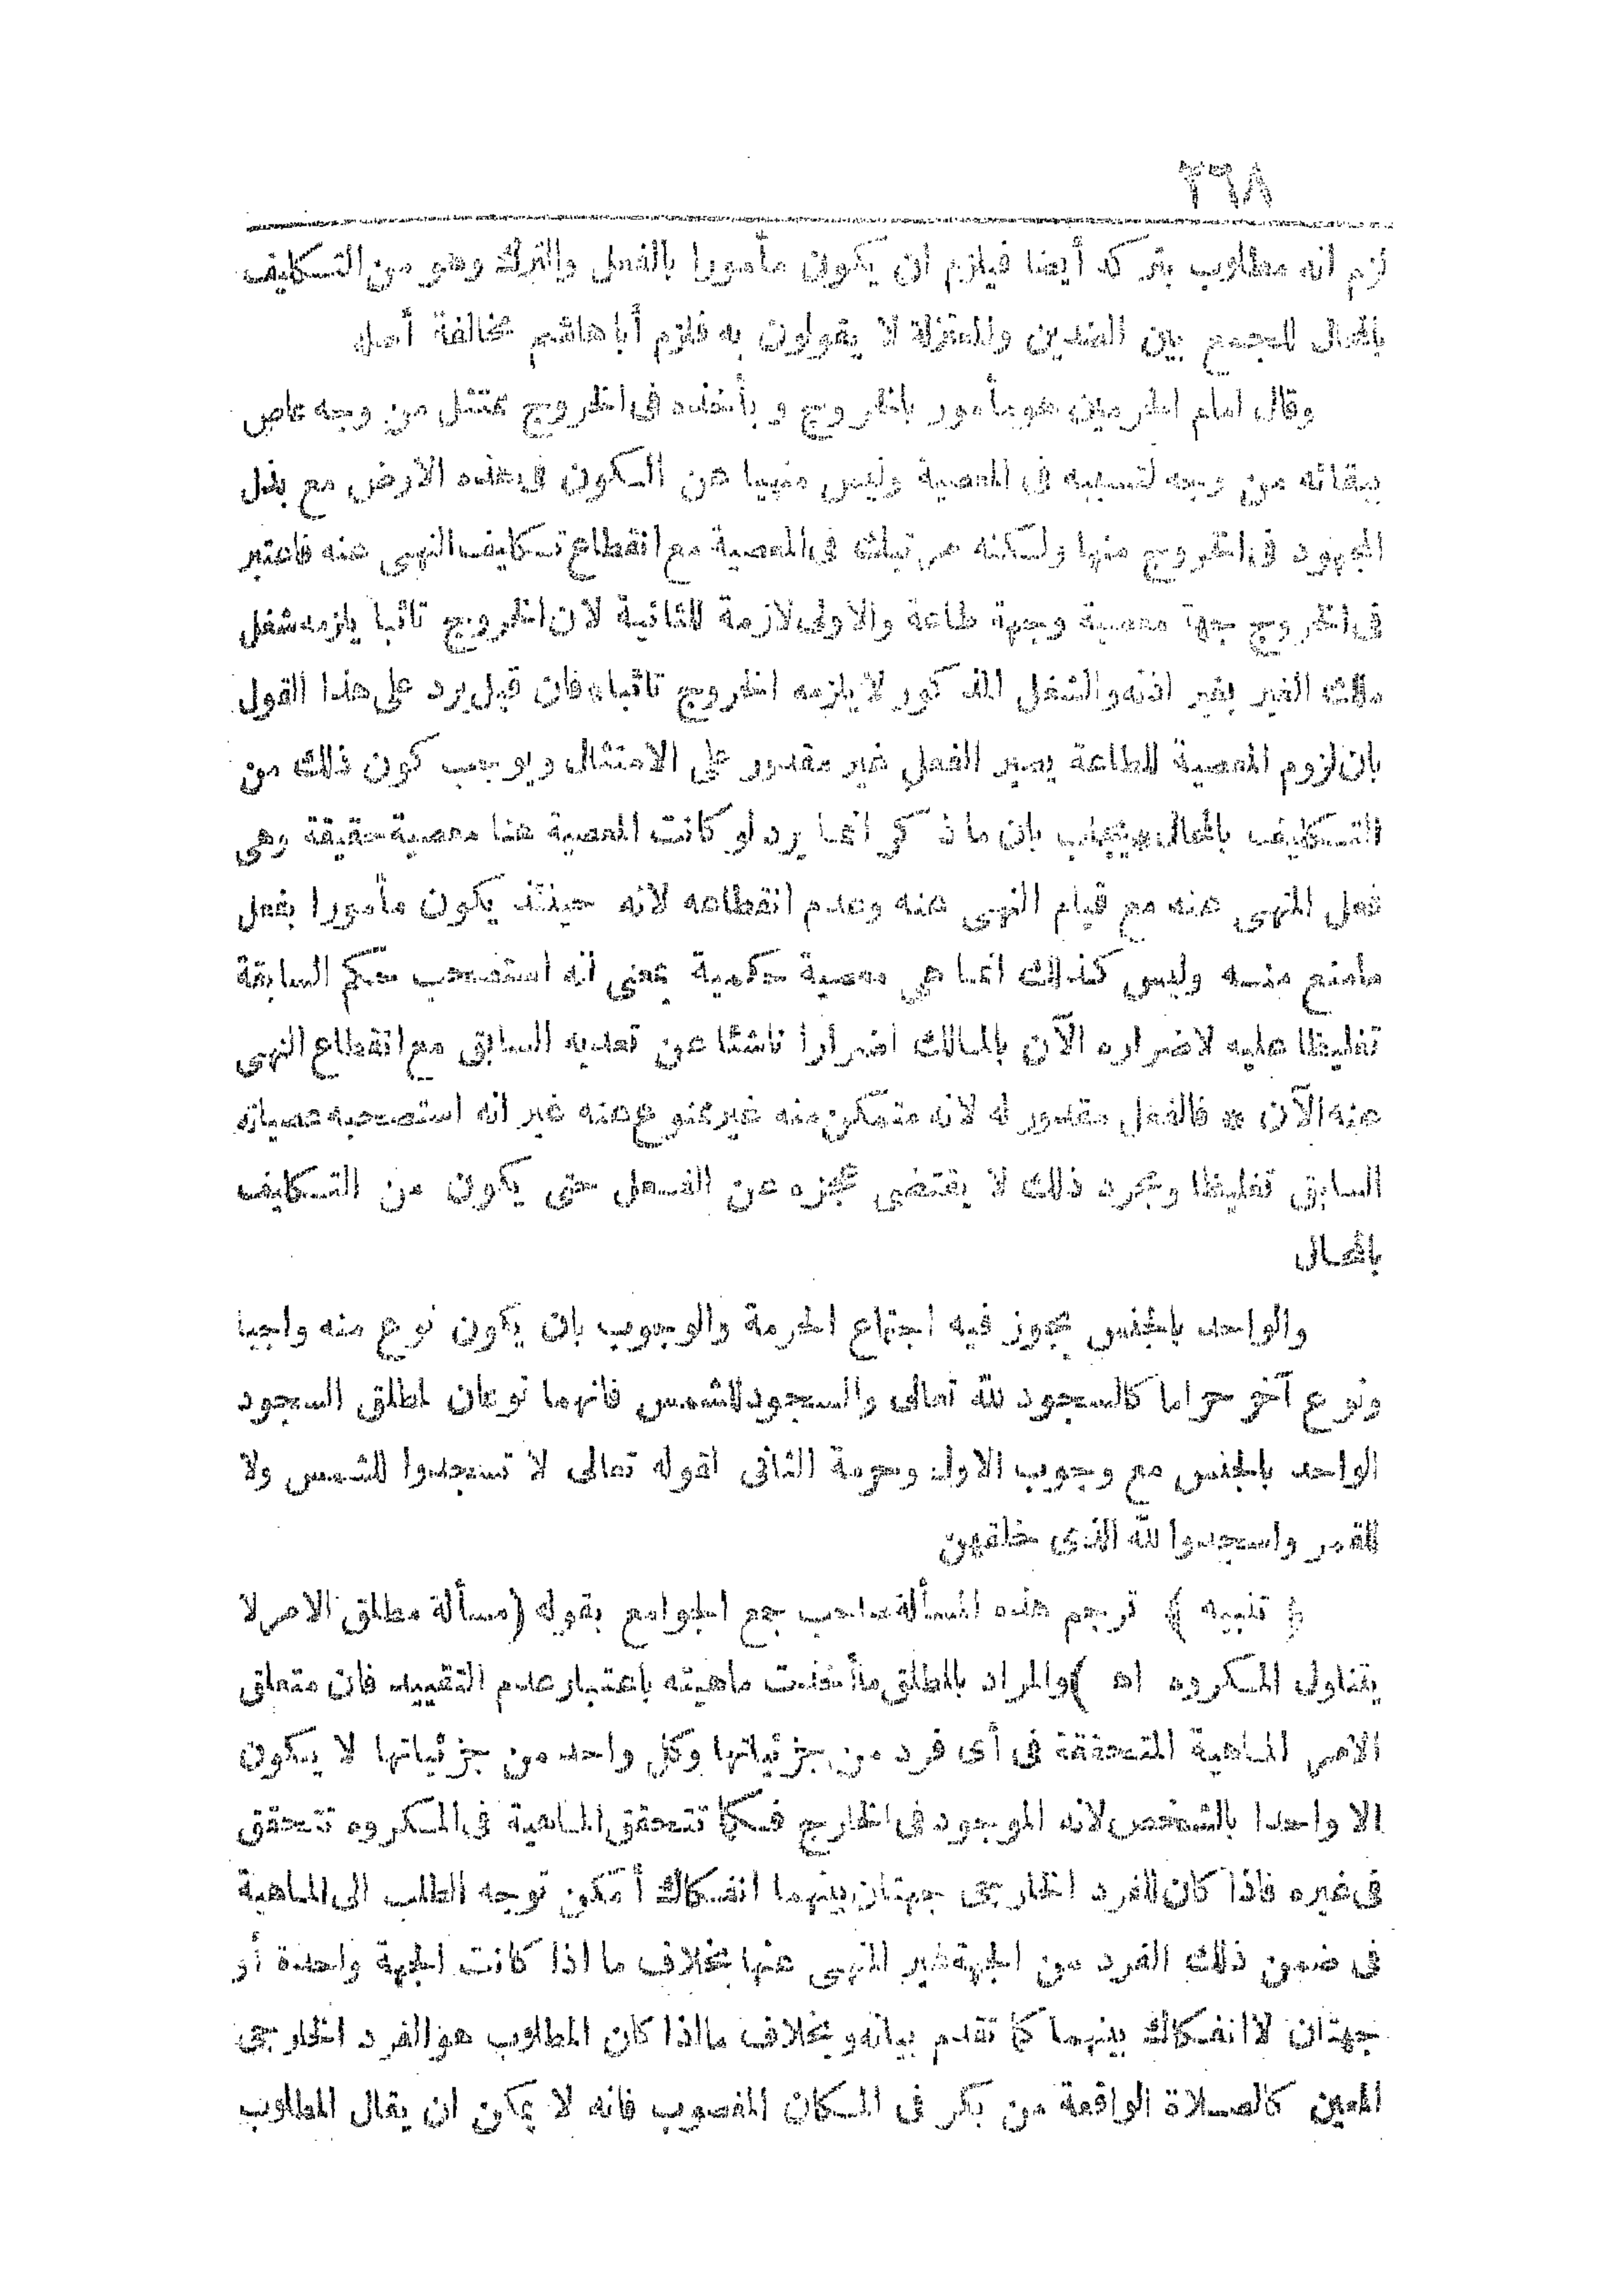 ٢٦٨
لزم انه مطلوب بتركه أيضا فيلزم ان يكون مأمورا بالفعل والترك وهو من التكليف
بالمحال للجمع بين الضدين والمعتزلة لا يقولون به فلزم أباهاشم مخالفة أصله
وقال امام الحرمين هو مأمور بالخروج و بأخذه فى الخروج ممتثل من وجه عاص
ببقائه من وجه لتسببه فى المعصية وليس منهيا عن الكون فى هذه الارض مع بذل
المجهود فى الخروج منها ولكنه مرتبك فى المعصية مع انقطاع تكليف النهى عنه فاعتبر
فى الخروج جهة معصية وجهة طاعة والاولى لازمة للثانية لان الخروج تائبا يلزمه شغل
ملك الغير بغير اذنه والشغل المذكور لا يلزمه الخروج تائبا * فان قيل يرد على هذا القول
بان لزوم المعصية للطاعة يصير الفعل غير مقدور على الامتثال ويوجب كون ذلك من
التكليف بالمحال * يجاب بان ما ذكر انما يرد لو كانت المعصية هنا معصية حقيقة وهى
فعل المنهى عنه مع قيام النهى عنه وعدم انقطاعه لانه حينئذ يكون مأمورا بفعل
مامنع منه وليس كذلك انما هي معصية حكمية بمعنى انه استصحب حكم السابقة
تغليظا عليه لاضراره الآن بالمالك اضرارا ناشئا عن تعديه السابق مع انقطاع النهى
عنه الآن * فالفعل مقدور له لانه متمكن منه غير ممنوع عنه غير انه استصحبه عصيانه
السابق تغليظا ومجرد ذلك لا يقتضى عجزه عن الفعل حتى يكون من التكليف
بالمحال
والواحد بالجنس يجوز فيه اجتماع الحرمة والوجوب بان يكون نوع منه واجبا
ونوع آخر حراما كالسجود لله تعالى والسجود للشمس فانهما نوعان لمطلق السجود
الواحد بالجنس مع وجوب الاول وحرمة الثانى لقوله تعالى لا تسجدوا للشمس ولا
للقمر واسجدوا لله الذى خلقهن
﴿ تنبيه ﴾ ترجم هذه المسألة صاحب جمع الجوامع بقوله (مسألة مطلق الامر لا
يتناول المكروه اه ) والمراد بالمطلق ماأخذت ماهيته باعتبار عدم التقييد فان متعلق
الامر الماهية المتحققة فى أى فرد من جزئياتها وكل واحد من جزئياتها لا يكون
الا واحدا بالشخص لانه الموجود فى الخارج فكما تتحقق الماهية فى المكروه تتحقق
فى غيره فاذا كان للفرد الخارجى جهتان بينهما انفكاك أمكن توجه الطلب الى الماهية
فى ضمن ذلك الفرد من الجهة غير المنهى عنها بخلاف ما اذا كانت الجهة واحدة أو
جهتان لا انفكاك بينهما كما تقدم بيانه وبخلاف مااذا كان المطلوب هو الفرد الخارجى
المعين كالصلاة الواقعة من بكر فى المكان المغصوب فانه لا يمكن ان يقال المطلوب